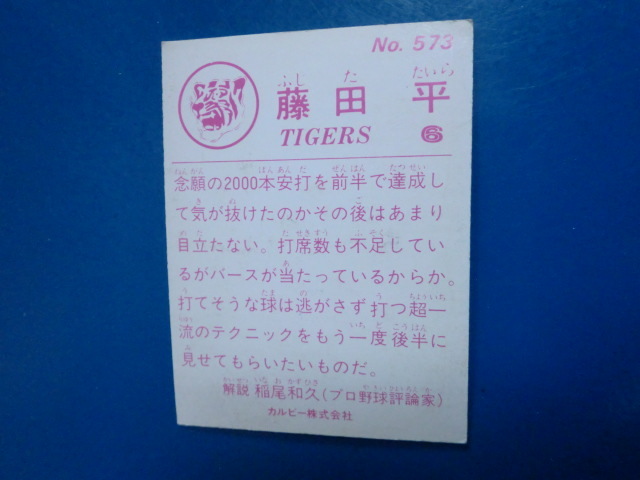 No. 573
ふじ た たいら
藤田 平
TIGERS 6
念願の2000本安打を前半で達成し
て気が抜けたのかその後はあまり
目立たない。打席数も不足してい
るがバースが当たっているからか。
打てそうな球は逃がさず打つ超一
流のテクニックをもう一度後半に
見せてもらいたいものだ。
解説 稲尾和久(プロ野球評論家)
カルビー株式会社